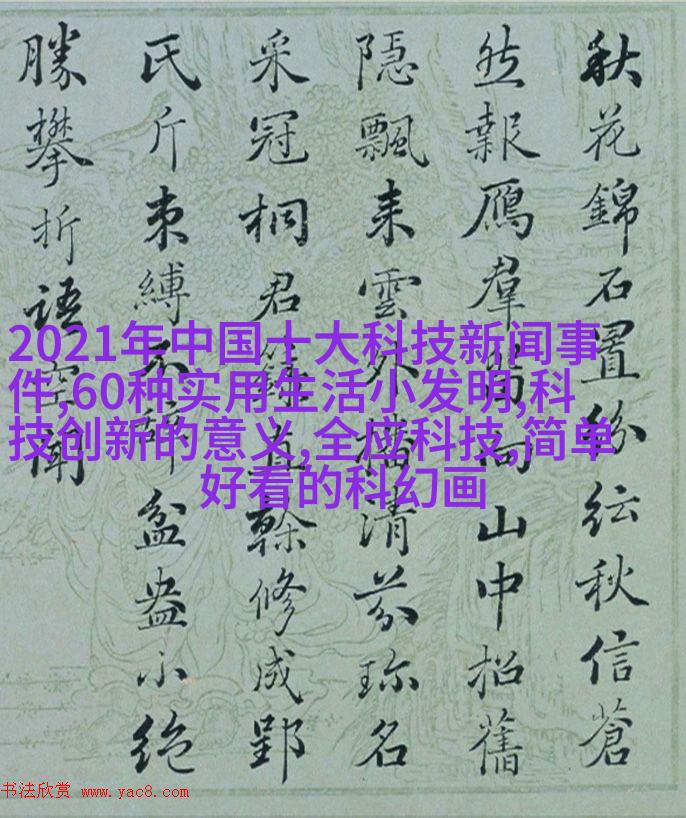 秋花錦石置紛紜秋信蒼
然報鴈羣向山中招舊
隱飄来雲外清芬珎名
采冠桐君錄直幹修成郢
氏斤束縛不辭盆盎小絶
勝攀折語空聞
2021年中国十大科技新闻事
件,60种实用生活小发明,科
技创新的意义,全应科技,简单
好看的科幻画
书法欣赏 www.yac8.com